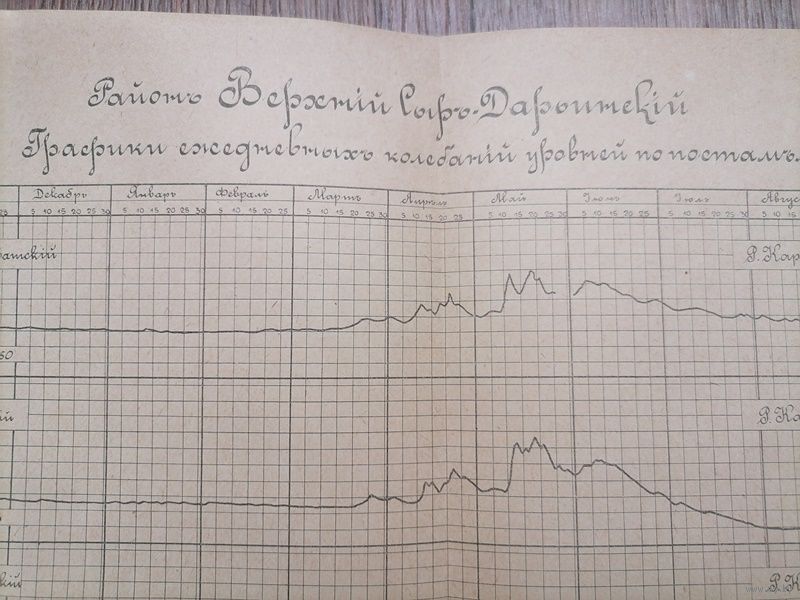 Районъ Верхній Сыръ-Дарьинскій
Графики ежедневныхъ колебаній уровней по постамъ.
Декабрь Январь Февраль Мартъ Апрѣль Май Іюнь Іюль Август
25 5 10 15 20 25 30 5 10 15 20 25 30 5 10 15 20 25 5 10 15 20 25 30 5 10 15 20 25 5 10 15 20 25 30 5 10 15 20 25 30 5 10 15 20 25 30 5 10 15
Р. Кар
50
Р. Ка
Р. К